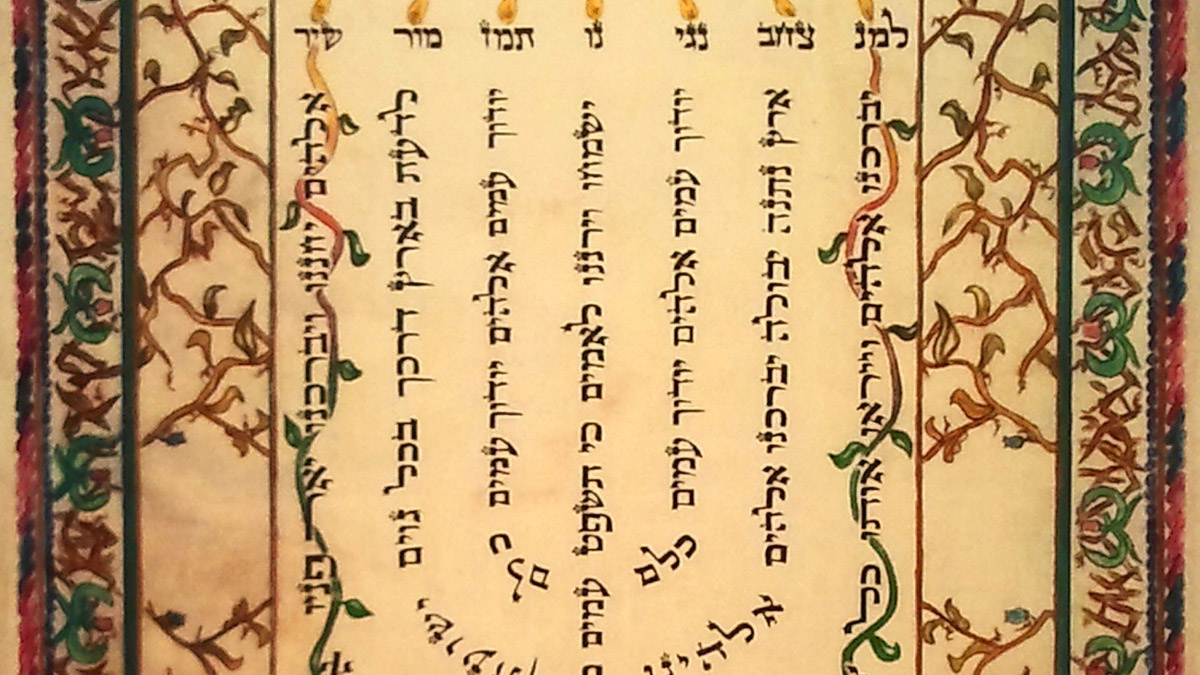 למנ צחב נגי נו תמז מור שיר
אלהים יחננו ויברכנו יאר פניו
לדעת בארץ דרכך בכל גוים
יודוך עמים אלהים יודוך עמים כלם
ישמחו וירננו לאמים כי תשפט עמים
יודוך עמים אלהים יודוך עמים כלם
ארץ נתנה יבולה יברכנו אלהים
יברכנו אלהים וייראו אותו כל